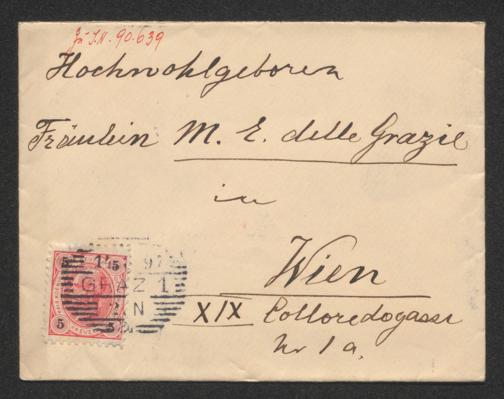 Zu I.N. 90.639
Hochwohlgeboren
Fräulein M. E. delle Grazie
in
Wien
XIX Colloredogasse
Nr 1a.
5 5
97
GRAZ 1
5 5